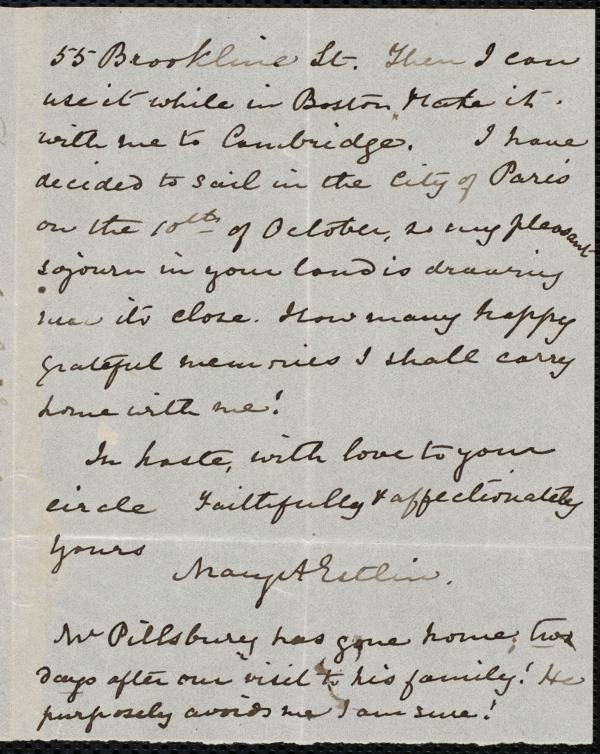 55 Brookline St. Then I can
use it while in Boston & take it
with me to Cambridge. I have
decided to sail in the City of Paris
on the 10th of October, so my pleasant
sojourn in your land is drawing
near its close. How many happy
grateful memories I shall carry
home with me!
In haste, with love to your
circle Faithfully & affectionately
yours
Mary A Estlin.
Mr Pillsbury has gone home, two
days after our visit to his family! He
purposely avoids me I am sure!